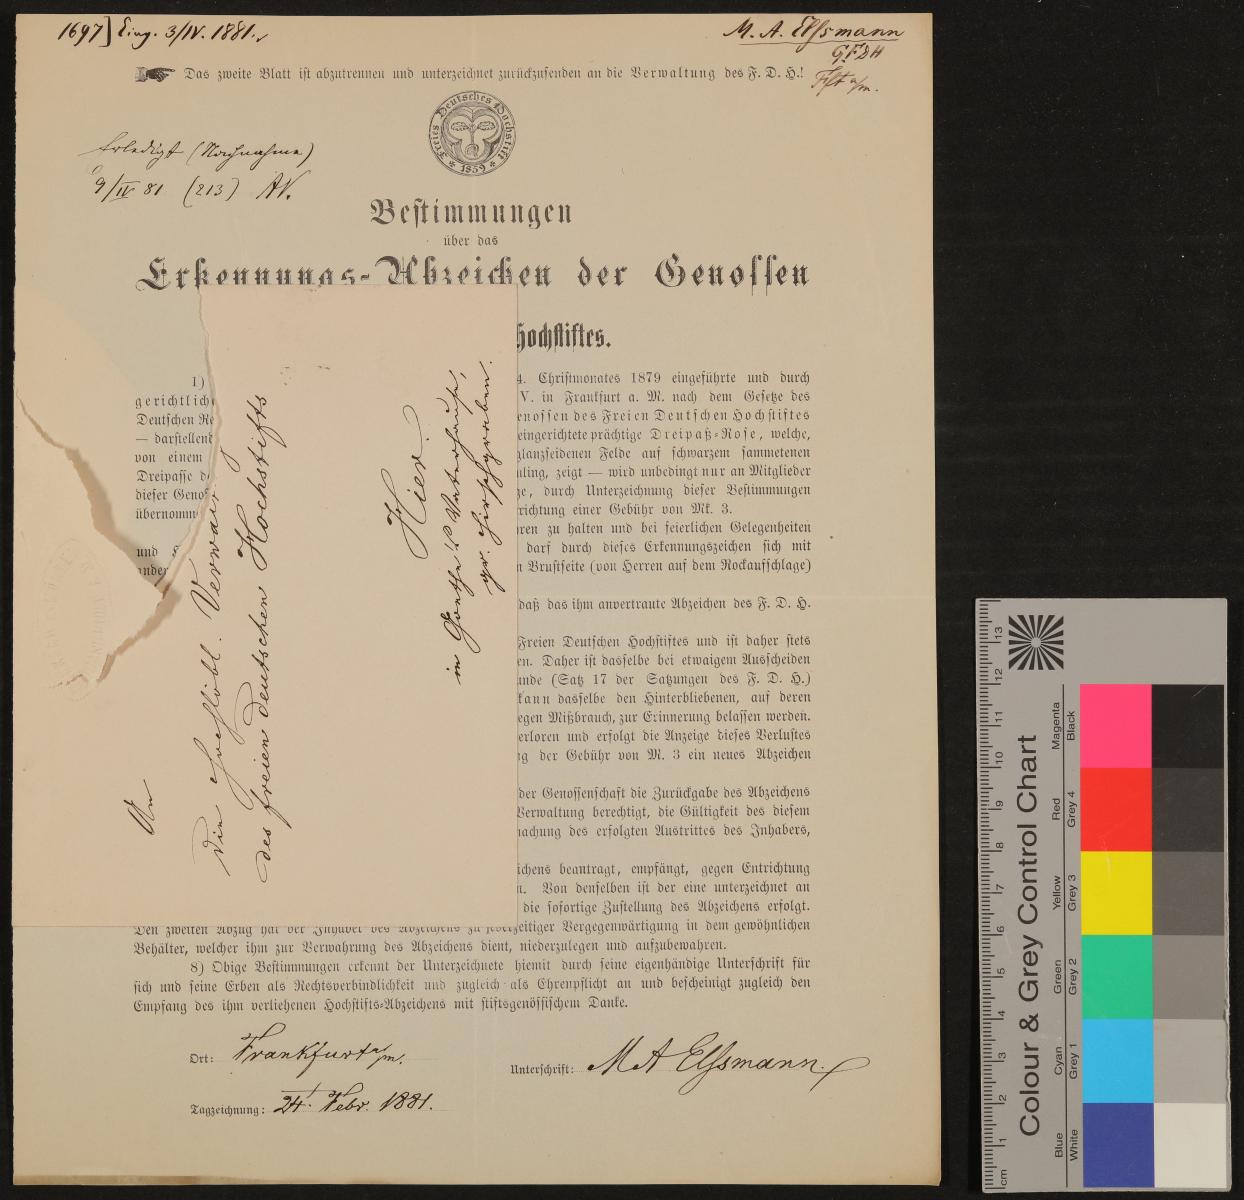 1697] Eing. 3/IV. 1881.
M. A. Elſsmann
G.F.D.H
Fkft a/m.
Das zweite Blatt iſt abzutrennen und unterzeichnet zurückzuſenden an die Verwaltung des F. D. H.!
Freies Deutſches Hochſtift
* 1859 *
Erledigt (Nachnahme)
9/IV 81 (213) AV.
Beſtimmungen
über das
Erkennungs-Abzeichen der Genoſſen
Hochſtiftes.
1)
4. Chriſtmonates 1879 eingeführte und durch
gerichtlich
V. in Frankfurt a. M. nach dem Geſetze des
Deutſchen Re
enoſſen des Freien Deutſchen Hochſtiftes
— darſtellend
eingerichtete prächtige Dreipaß-Roſe, welche,
von einem
glanzſeidenen Felde auf ſchwarzem ſammetenen
Dreipaſſe d
ling, zeigt — wird unbedingt nur an Mitglieder
dieſer Genoſ
ze, durch Unterzeichnung dieſer Beſtimmungen
übernomm
richtung einer Gebühr von Mk. 3.
ren zu halten und bei feierlichen Gelegenheiten
und
darf durch dieſes Erkennungszeichen ſich mit
ander
n Bruſtſeite (von Herren auf dem Rockaufſchlage)
daß das ihm anvertraute Abzeichen des F. D. H.
Freien Deutſchen Hochſtiftes und iſt daher ſtets
en. Daher iſt dasſelbe bei etwaigem Ausſcheiden
unde (Satz 17 der Satzungen des F. D. H.)
kann dasſelbe den Hinterbliebenen, auf deren
egen Mißbrauch, zur Erinnerung belaſſen werden.
erloren und erfolgt die Anzeige dieſes Verluſtes
ng der Gebühr von M. 3 ein neues Abzeichen
der Genoſſenſchaft die Zurückgabe des Abzeichens
Verwaltung berechtigt, die Gültigkeit des dieſem
machung des erfolgten Austrittes des Inhabers,
ichens beantragt, empfängt, gegen Entrichtung
n. Von denſelben iſt der eine unterzeichnet an
die ſofortige Zuſtellung des Abzeichens erfolgt.
Den zweiten Abzug hat der Inhaber des Abzeichens zu jederzeitiger Vergegenwärtigung in dem gewöhnlichen
Behälter, welcher ihm zur Verwahrung des Abzeichens dient, niederzulegen und aufzubewahren.
8) Obige Beſtimmungen erkennt der Unterzeichnete hiemit durch ſeine eigenhändige Unterſchrift für
ſich und ſeine Erben als Rechtsverbindlichkeit und zugleich als Ehrenpflicht an und beſcheinigt zugleich den
Empfang des ihm verliehenen Hochſtifts-Abzeichens mit ſtiftsgenöſſiſchem Danke.
Ort: Frankfurt a/m.
Unterſchrift: M A Elſsmann.
Tagzeichnung: 24. Febr. 1881.
An
die hochlöbl. Verwal
des freien Deutschen Hochstifts
Hier.
in Goethe's Vaterhause,
gr. Hirschgraben.
Colour & Grey Control Chart
cm 1 2 3 4 5 6 7 8 9 10 11 12 13
Blue Cyan Green Yellow Red Magenta
White Grey 1 Grey 2 Grey 3 Grey 4 Black